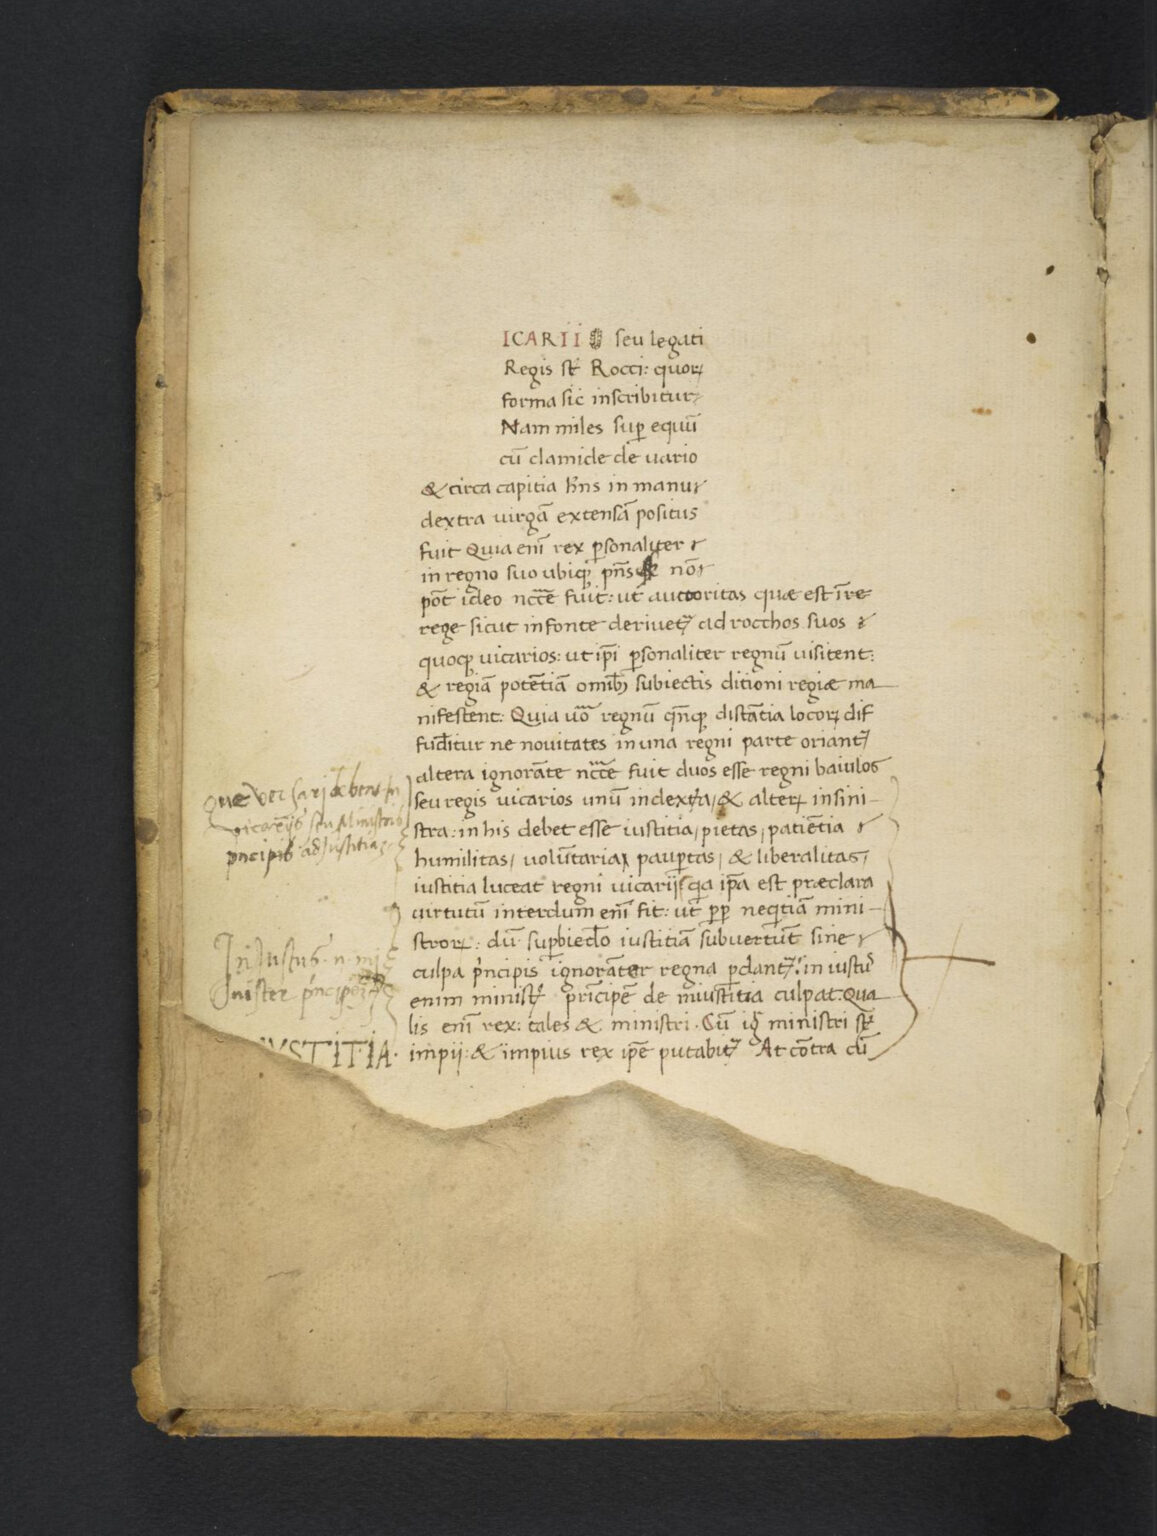 ICARII seu legati
Regis sᵗ Rocci: quoꝝ
forma sic inscribitur
Nam miles suꝑ equū
cū clamide de uario
& circa capitia hñs in manu
dextra uirgā extensā positus
fuit Quia enī rex ꝑsonaliter
in regno suo ubiqꝫ pn̄s nō
pōt ideo nccē fuit: ut auctoritas quæ est īre
rege sicut in fonte deriuetꝰ ad rocchos suos
quoqꝫ uicarios: ut ip̄i ꝑsonaliter regnū uisitent:
& regiā potētiā omībꝫ subiectis ditioni regiæ ma
nifestent: Quia uō regnū qn̄qꝫ distātia locoꝝ dif
fūditur ne nouitates in una regni parte oriantꝰ
altera ignorāte nccē fuit duos esse regni baiulos
seu regis uicarios unū in dextra, & alteꝝ in sini–
stra: in his debet esse iustitia, pietas, patiētia
humilitas, uolūtaria pauꝑtas, & liberalitas,
iustitia luceat regni uicarii qa ip̄a est præclara
uirtutū interdum enī fit: ut ꝓp neqtiā mini–
stroꝝ: dū suꝑbiēdo iustitiā subuertūt sine
culpa pͥncipis ignorāter regna ꝑdantꝰ: in iustꝰ
enim ministꝰ pricipē de iniustitia culpat: Qua
lis enī rex: tales & ministri. Cū igͥ ministri sᵗ
impii: & impius rex ip̄e putabitꝰ At cōtra cū
que versari debent in
vicarijs seu Ministris
pncipis ad Justitiaȝ
Iniustus .n. mi
nister pͥncipē
IVSTITIA.